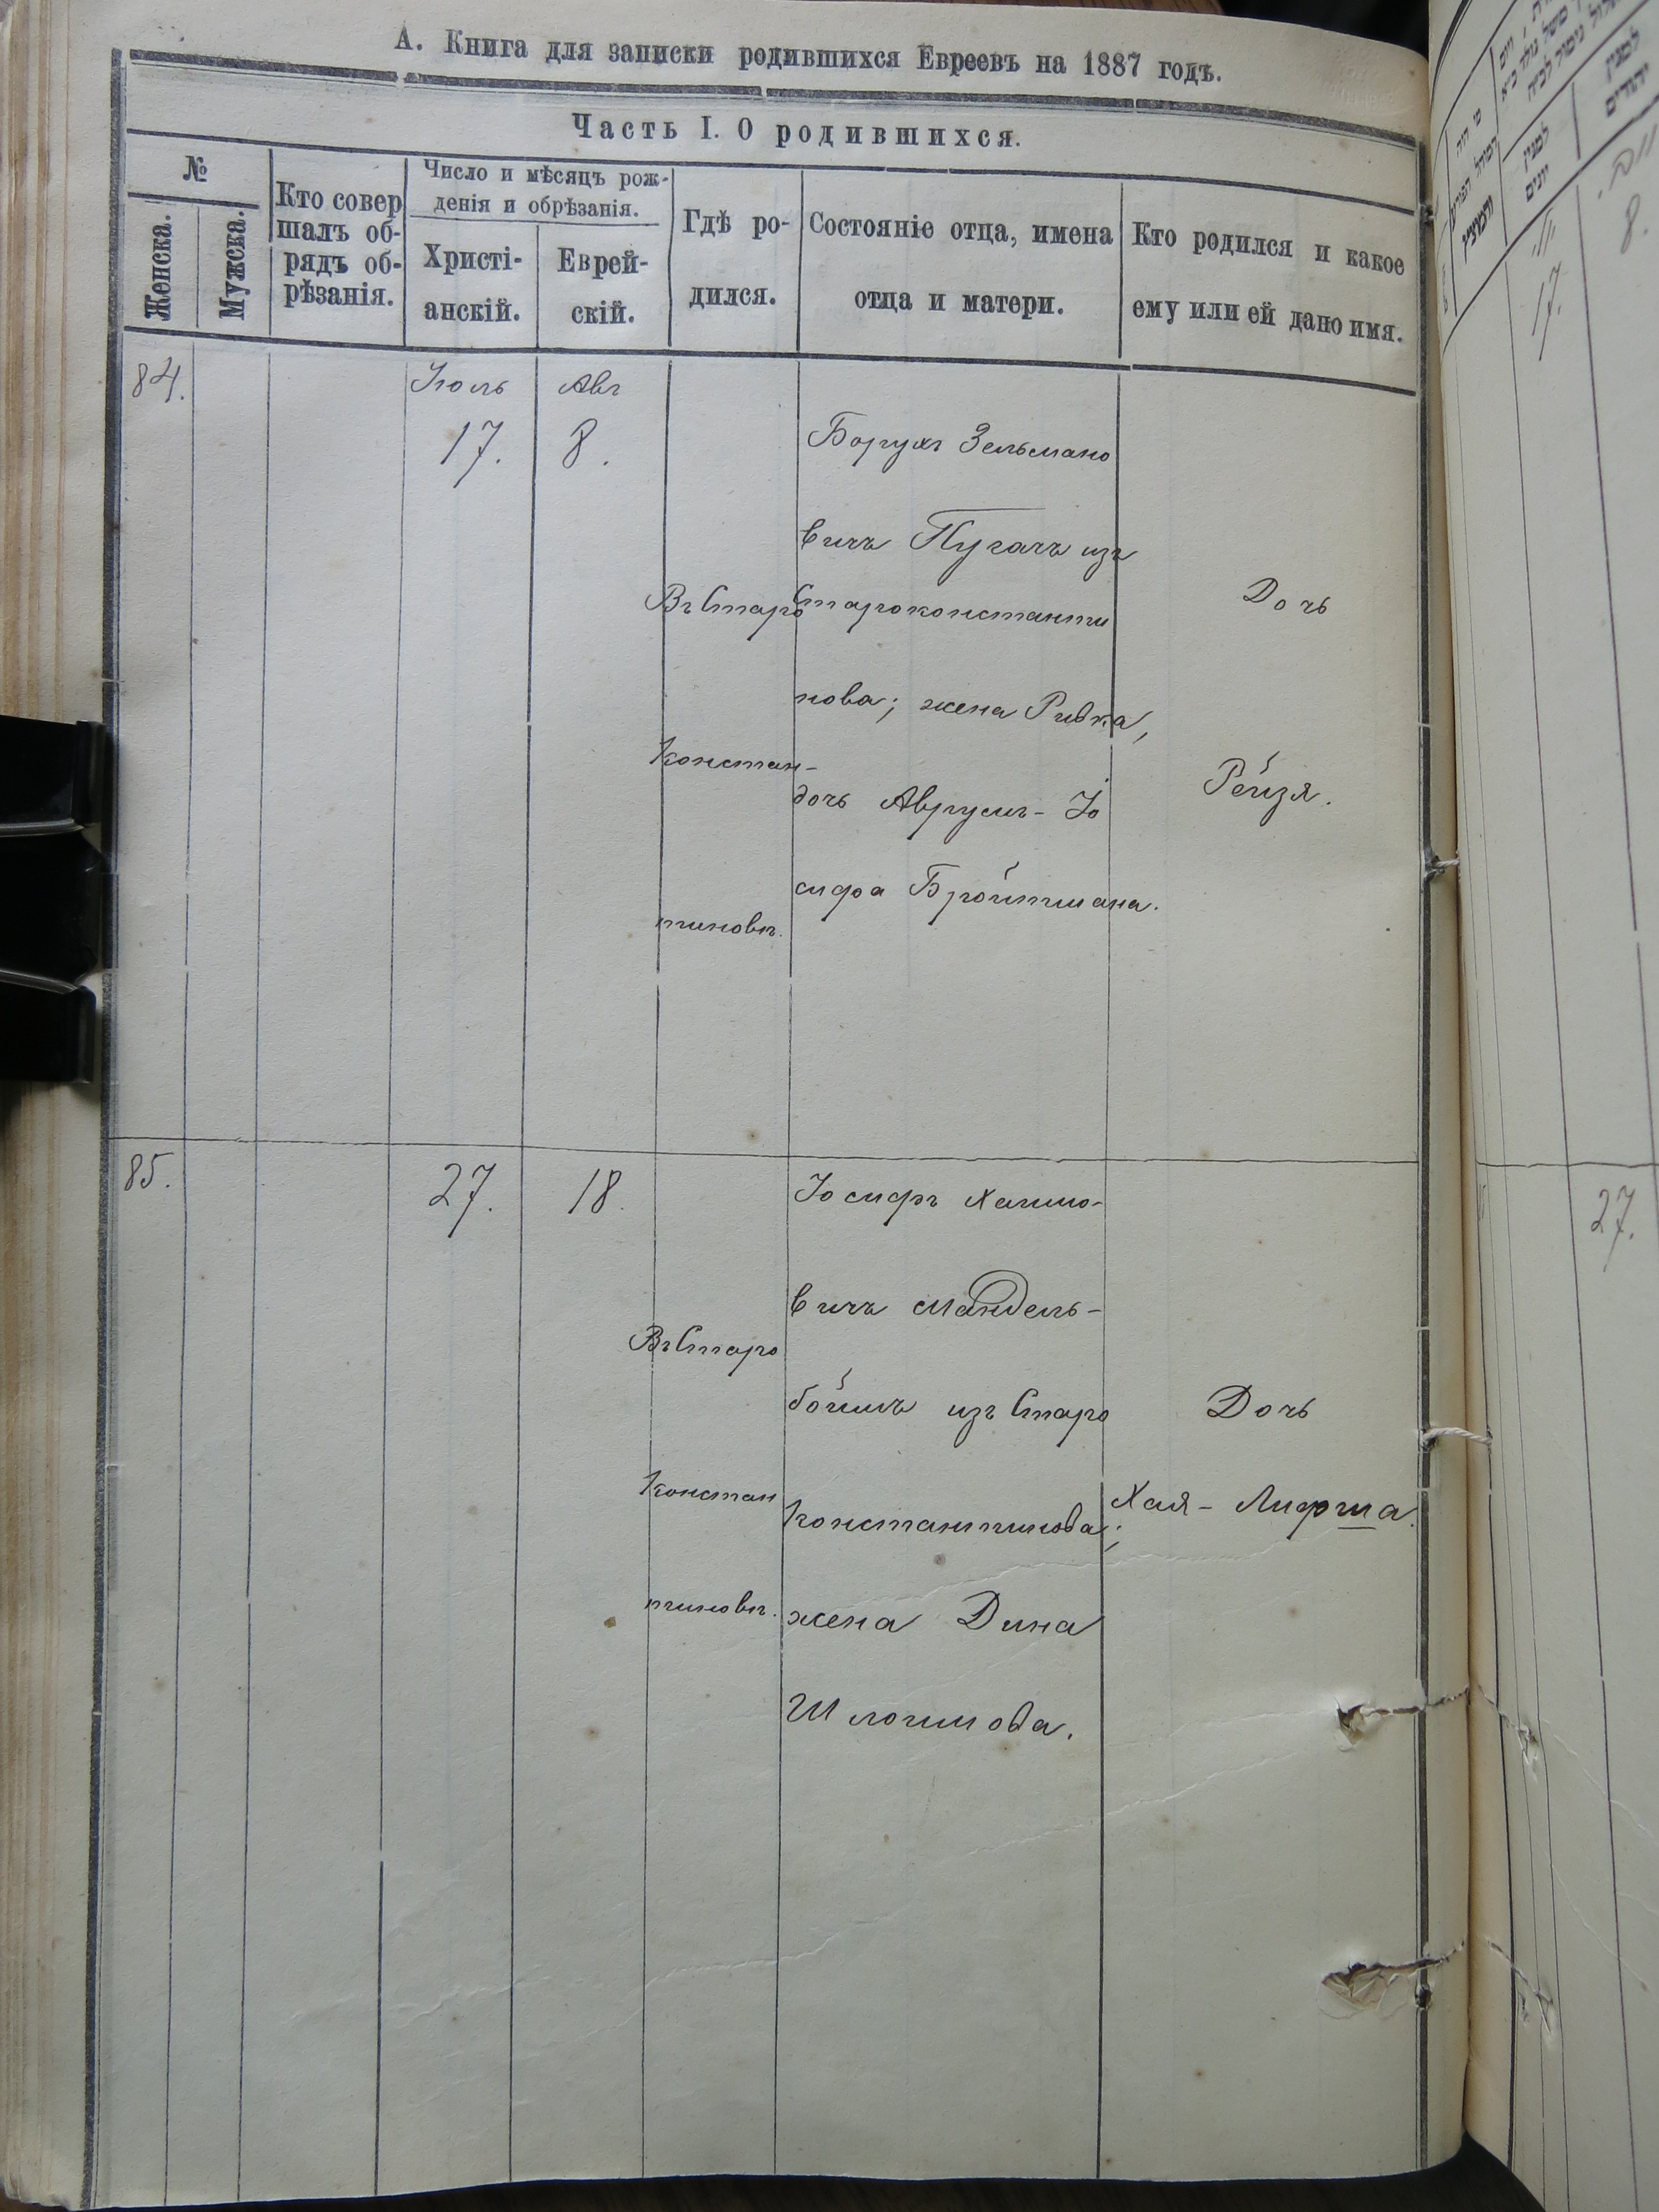 А. Книга для записки родившихся Евреевъ на 1887 годъ.
Часть I. О родившихся.
№
Женска.
Мужска.
Кто совер
шалъ об-
рядъ об-
рѣзанія.
Число и мѣсяцъ рож-
денія и обрѣзанія.
Христі-
анскій.
Еврей-
скій.
Гдѣ ро-
дился.
Состояніе отца, имена
отца и матери.
Кто родился и какое
ему или ей дано имя.
84.
Іюль
17.
Авг
8.
Въ Старо
констан-
тиновѣ.
Борухъ Зельмано
вичъ Пугачъ изъ
Староконстанти
нова; жена Ривка,
дочь Аврумъ-Іо
сифа Бройтмана.
Дочь
Рейзя.
85.
27.
18.
Въ Старо
констан
тиновѣ.
Іосифъ Хаимо-
вичъ Мандель-
боймъ изъ Старо
константинова;
жена Дина
Шлоимова.
Дочь
Хая-Лифша.
17.
8.
27.